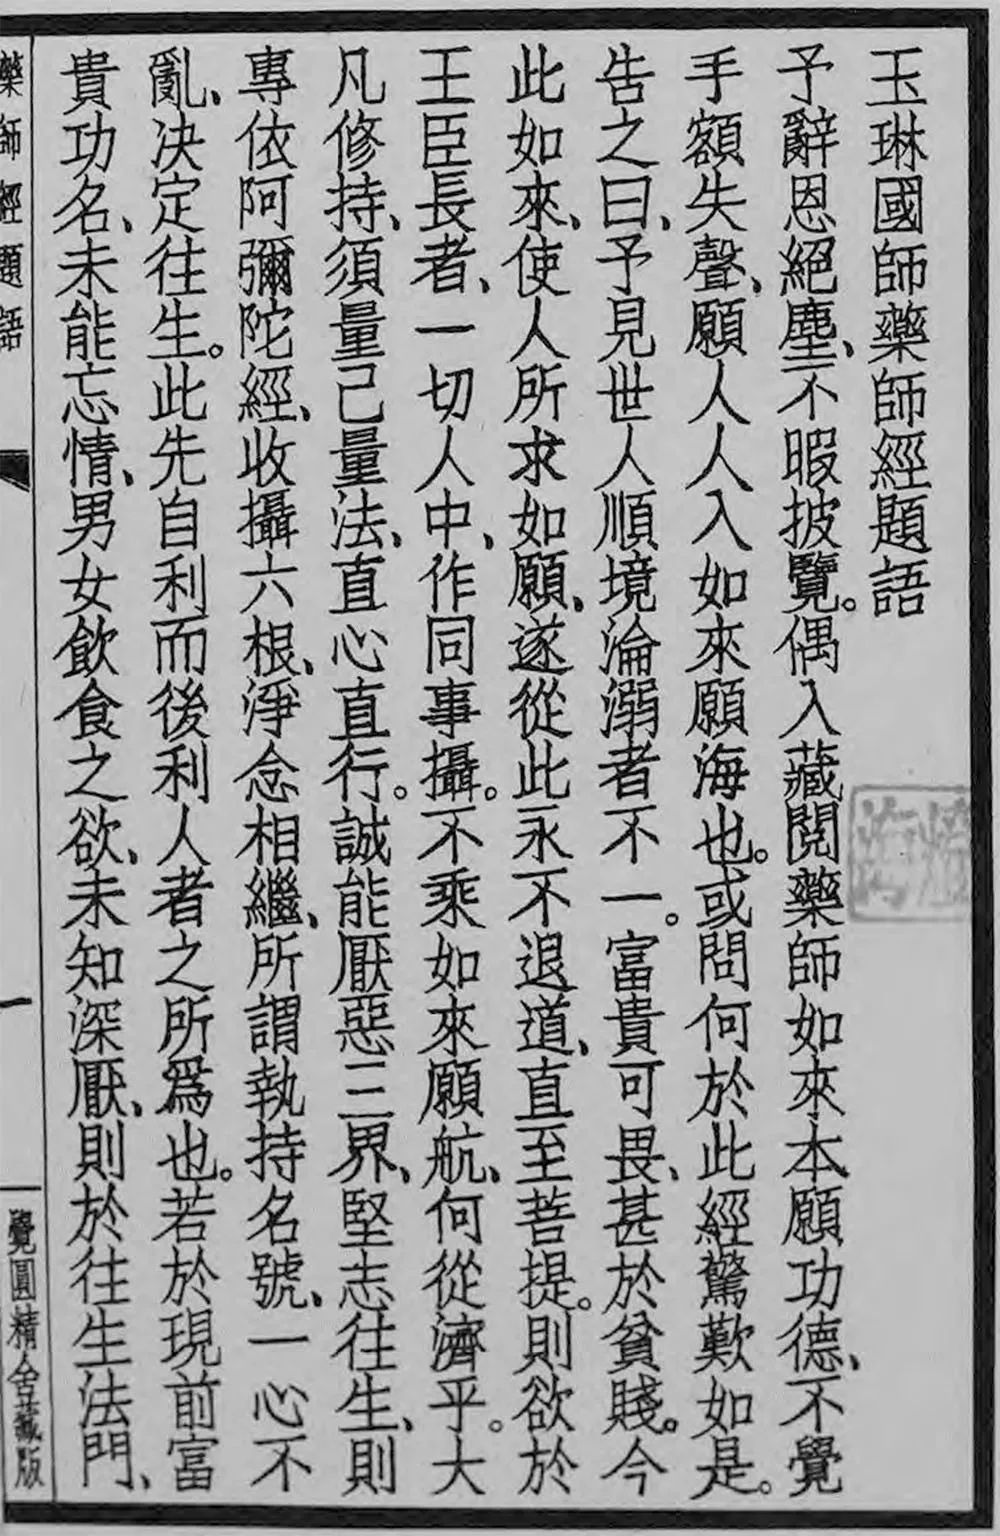 玉琳國師藥師經題語
予辭恩絕塵、不暇披覽。偶入藏閱藥師如來本願功德、不覺
手額失聲、願人人入如來願海也。或問何於此經驚歎如是。
告之曰、予見世人順境淪溺者不一。富貴可畏、甚於貧賤。今
此如來、使人所求如願、遂從此永不退道、直至菩提。則欲於
王臣長者、一切人中、作同事攝。不乘如來願航、何從濟乎。大
凡修持、須量己量法、直心直行。誠能厭惡三界、堅志往生、則
專依阿彌陀經、收攝六根、淨念相繼、所謂執持名號、一心不
亂、決定往生。此先自利而後利人者之所為也。若於現前富
貴功名、未能忘情、男女飲食之欲、未知深厭、則於往生法門、
藥師經題語
一
覺圓精舍藏版